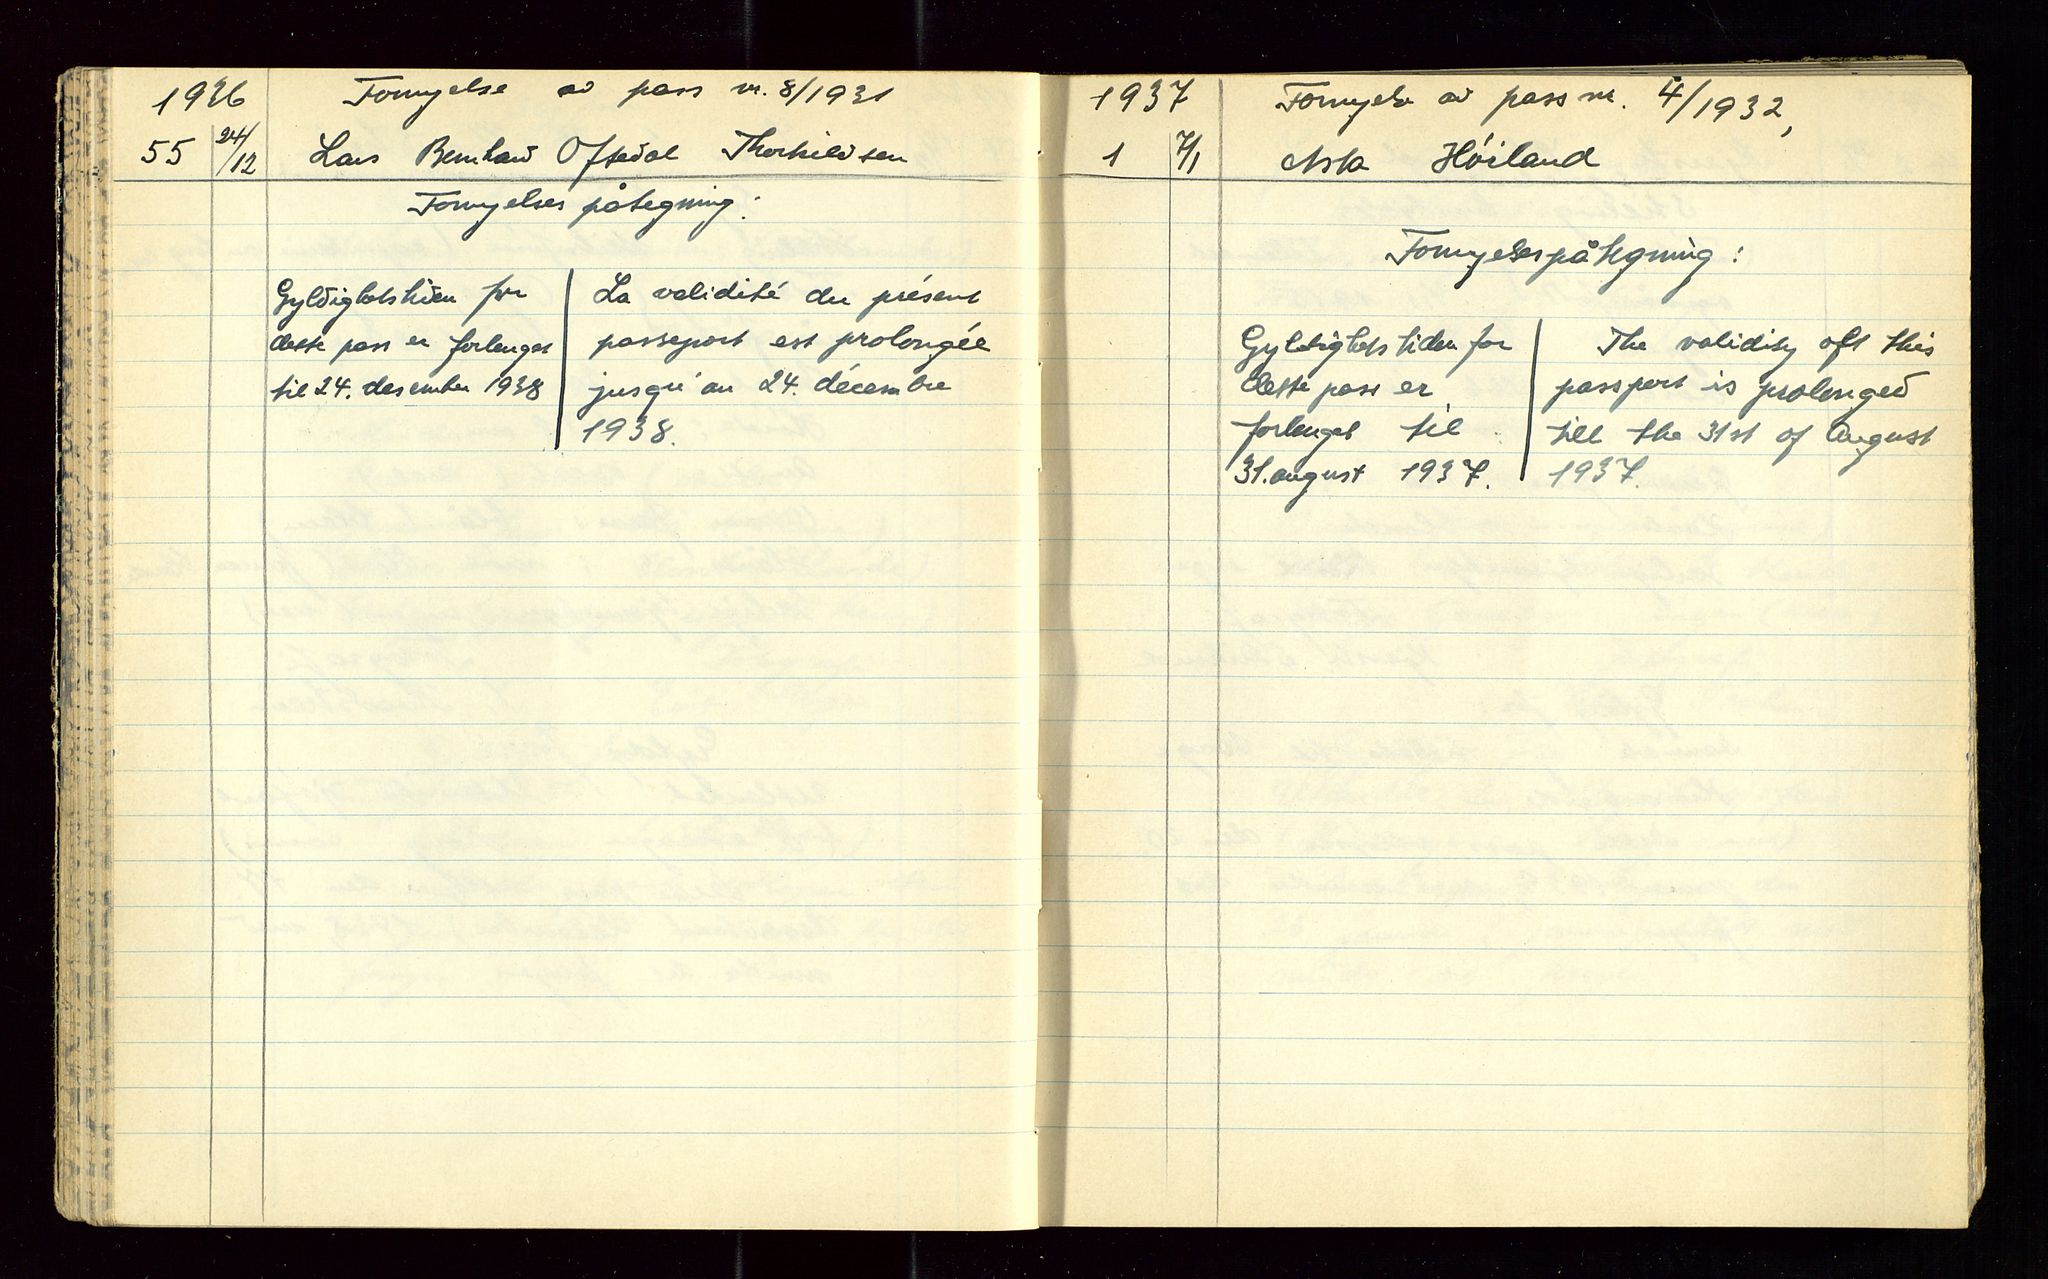 1936 Fornyelse av pass nr. 8/1931
55 24/12 Lars Bernhard Oftedal Thorkildsen
Fornyelses påtegning:
Gyldighetstiden for
dette pass er forlenget
til 24. desember 1938
La validité du présent
passeport est prolongée
jusqu'au 24. décembre
1938.
1937 Fornyelse av pass nr. 4/1932,
1 7/1 Høiland
Fornyelsespåtegning:
Gyldighetstiden for
dette pass er
forlenget til
31. august 1937.
The validity oft this
passport is prolonged
till the 31st of August
1937.